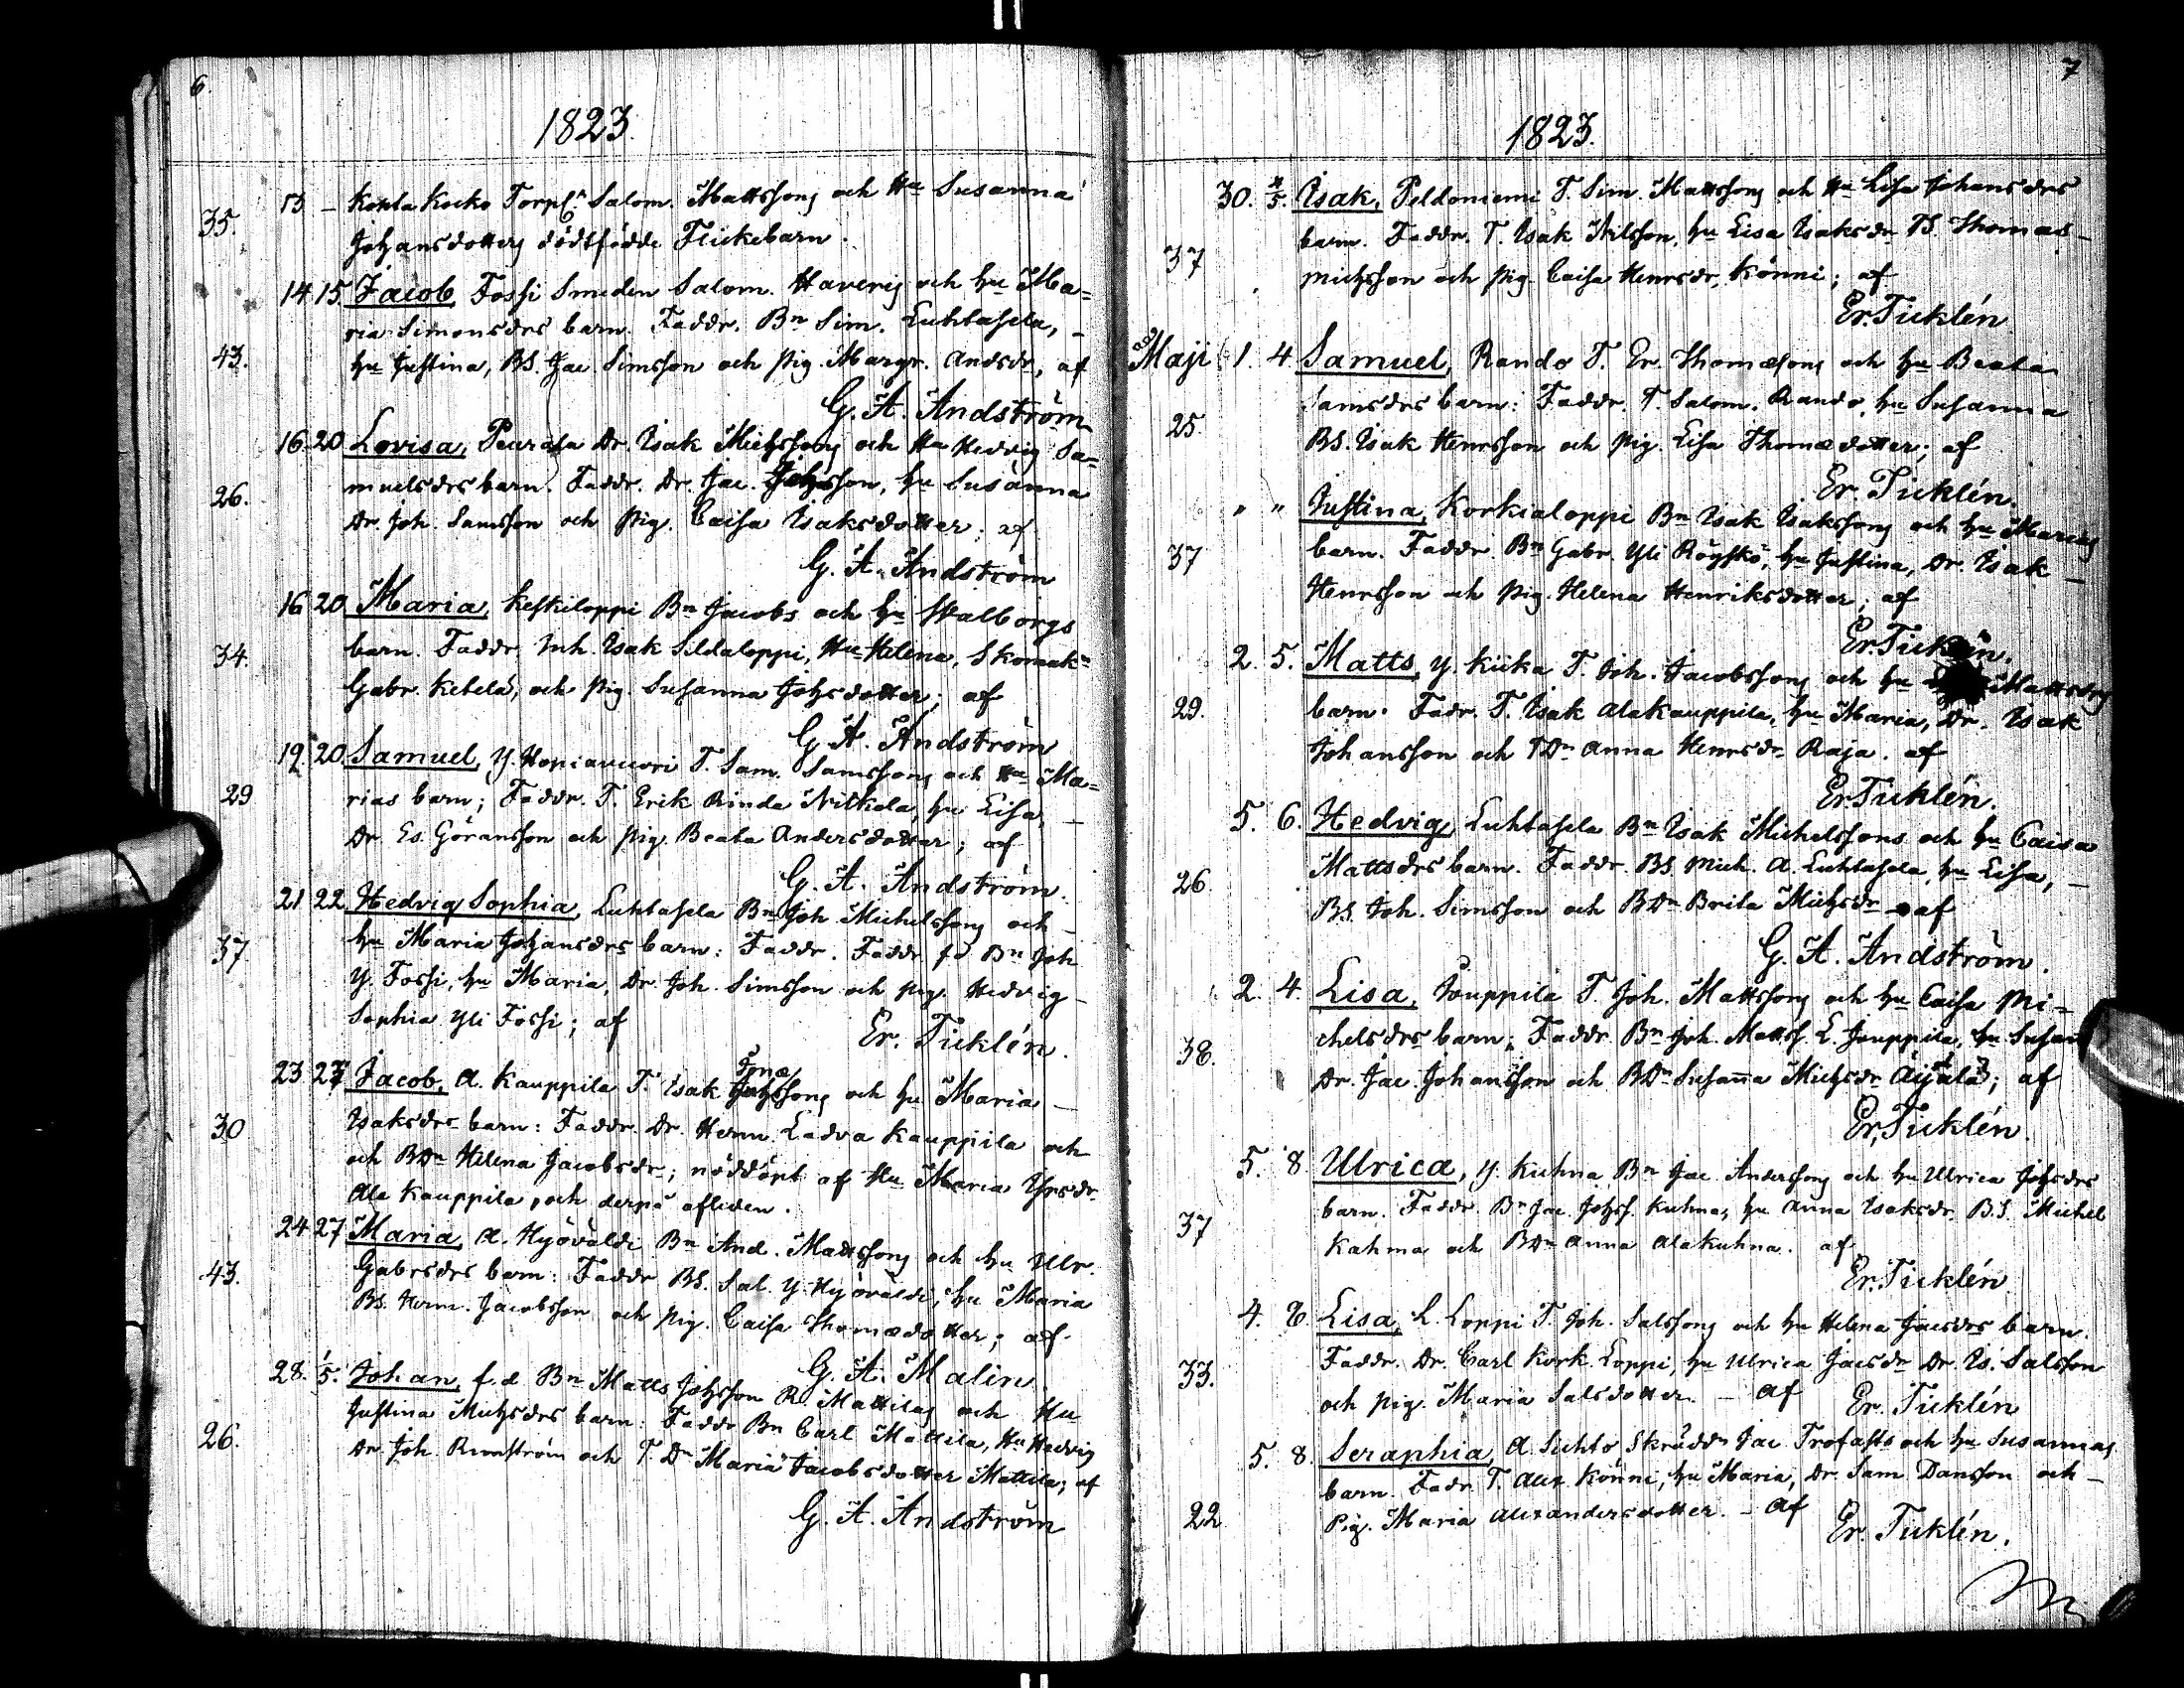 6.
1823.
35. 13 - Korta Kocko Torp. Salom. Mattssons och Hu Susanna
Johansdotters dödfödde Flickebarn.
14. 15. Jacob, Fossi Smeden Salom. Haveris och hu Ma=
ria Simonsdrs barn. Faddr. Bn Sim. Luhtasela, -
43. hu Justina, BS. Jac. Simsson och pig. Margr. Andsdr, af
G. A. Andström
16. 20 Lovisa, Peurala Dr. Isak Michssons och Hu Hedvig Sa=
muelsdrs barn. Faddr. Dr. Jac. Johsson, hu Susanna
26. Dr. Joh. Samsson och Pig. Caisa Isaksdotter; af
G. A. Andström
16 20 Maria, Keskiloppi Bn Jacobs och hu Walborgs
34. barn. Faddr. Inh. Isak Sildaloppi, Hu Helena, Skomak
Gabr. Ketela, och pig. Susanna Johsdotter; af
G. A. Andström
19. 20 Samuel, Y. Hopiavuori T. Sam. Samssons och Hu Ma=
29 rias barn; Faddr. T. Erik Rinda Nikkola, hu Lisa, -
Dr. Es. Göransson och pig. Beata Andersdotter; af
G. A. Andström.
21 22 Hedvig Sophia, Luhtasela Bn Joh. Michelssons och -
37 hu Maria Johansdrs barn: Faddr. Faddr fd Bn Joh
Y. Fossi, hu Maria, Dr. Joh. Simsson och pig. Hedvig -
Sophia Yli Fossi; af
Er. Ticklén.
23 27 Jacob, A. Kauppila T. Isak Johssons och hu Maria -
30 Isaksdrs barn: Faddr. Dr. Herm. Ladva Kauppila och
och BDr Helena Jacobsdr; nöddöpt af Hu Maria
Ala Kauppila, och derpå afliden.
24 27 Maria, A. Hyövälde Bn And. Mattssons och hu Ulr.
43. Gabrsdrs barn: Faddr BS. Sal. Y. Hyövälde, hu Maria
BS. Herm. Jacobsson och pig. Caisa Thomædotter; af
G. A. Malin
28. 1/5. Johan, f. d. Bn Matts Johsson R. Mattilas och Hu
Justina Michsdrs barn: Faddr Bn Carl Mattila, Hu Hedvig
26. Dr. Joh. Rumström och T. Dr Maria Jacobsdotter Mattila; af
G. A. Andström
7
1823.
30. 4/5. Isak, Peldoniemi T. Sim. Mattssons och Hu Lisa Johansdrs
barn. Faddr. T. Isak Nilsson, hu Lisa Isaksdr TS. Thomas -
37 Michsson och pig. Caisa Henrsdr, Könni; af
Er. Ticklén
Maji 1. 4. Samuel, Rando T. Er. Thomæsons och hu Beata
Samsdrs barn: Faddr. T. Salom. Rando, hu Susanna
25. BS. Isak Henrsson och pig. Lisa Thomædotter; af
Er. Ticklén.
" " Justina, Korkialoppi Bn Isak Isakssons och hu Marias
37 barn. Faddr. Bn Gabr. Yli Röyskö, hu Justina, Dr. Isak -
Henrsson och pig. Helena Henriksdotter; af
Er. Ticklén.
2. 5. Matts, Y. Kiika T. Joh. Jacobssons och hu Mattsdrs
29. barn. Fadr. T. Isak Alakauppila, hu Maria, Dr. Isak
Johansson och TDr Anna Henrsdr Raja. af
Er. Ticklén.
5. 6. Hedvig, Luhtasela Bn Isak Michelssons och hu Caisa
Mattsdrs barn. Faddr. BS Mich. A. Luhtasela, hu Lisa, -
26. BS. Joh. Simsson och BDr Brita Michsdr af
G. A. Andström.
2. 4. Lisa, Jouppila T. Joh. Mattssons och hu Caisa Mi=
chelsdrs barn; Faddr. Bn Joh. Matts. L. Jouppila, hu
38. Dr. Jac. Johansson och BDr Susanna Michsdr Äijälä; af
Er. Ticklén.
5. 8. Ulrica, Y. Kuhna Bn Jac. Anderssons och hu Ulrica Johsdrs
barn. Faddr. Bn Jac. Johss. Kuhna, hu Anna Isaksdr, B.S. Michel
37 Kahma och BDr Anna Alakuhna. af
Er. Ticklén
4. 8. Lisa, L. Loppi T. Joh. Salssons och hu Helena Jacsdrs barn.
33. Faddr. Dr. Carl Kork. Loppi, hu Ulrica Jacsdr Dr. Is. Salsson
och pig. Maria Salsdotter. - af Er. Ticklén
5. 8. Seraphia, A. Suhto Skrädd. Jac. Trofasts och hu Susannas
barn. Fadr. T. Alex. Könni, hu Maria, Dr. Sam. Dansson och -
22 Pig. Maria Alexandersdotter. - af
Er. Ticklén.